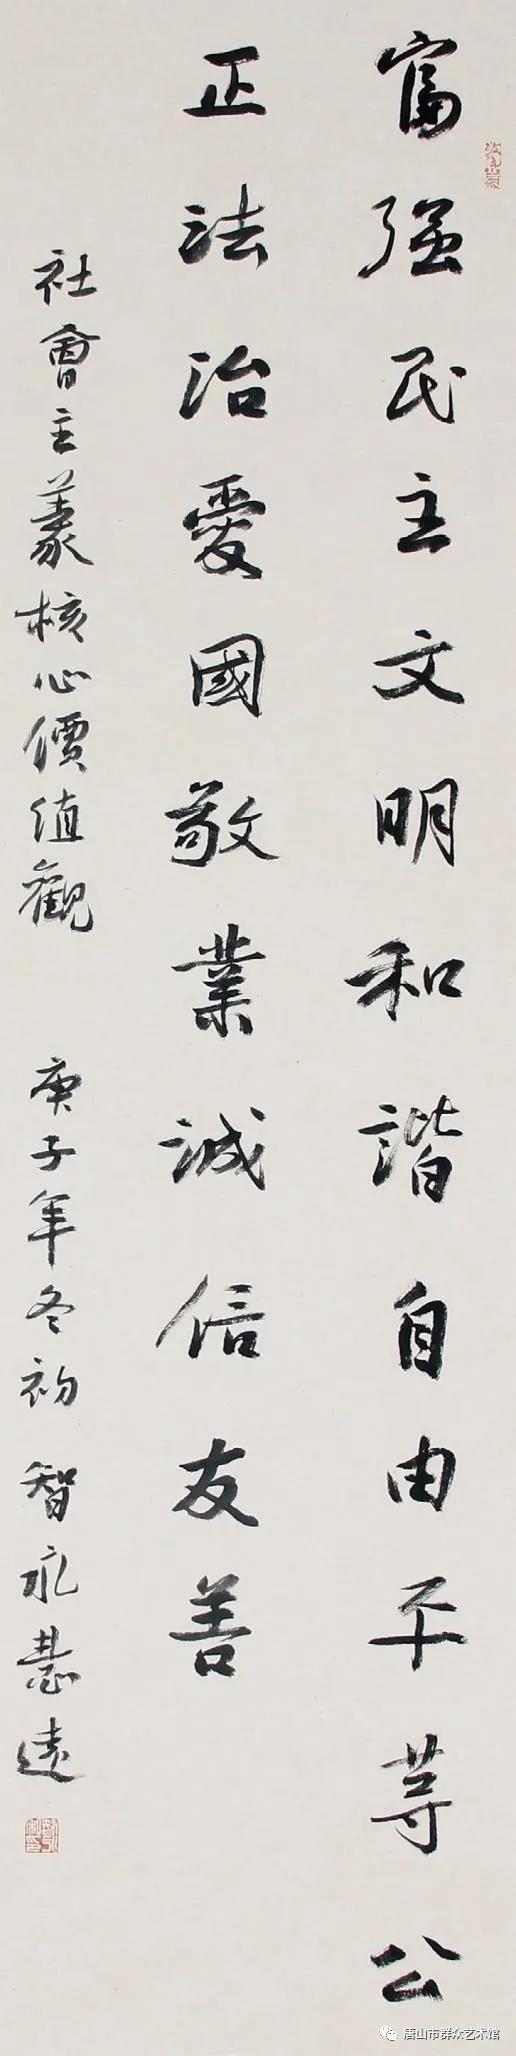 富强民主文明和諧自由平等公
正法治愛國敬業誠信友善
社會主義核心價值觀 庚子年冬初 智永慧遠
唐山市群众艺术馆